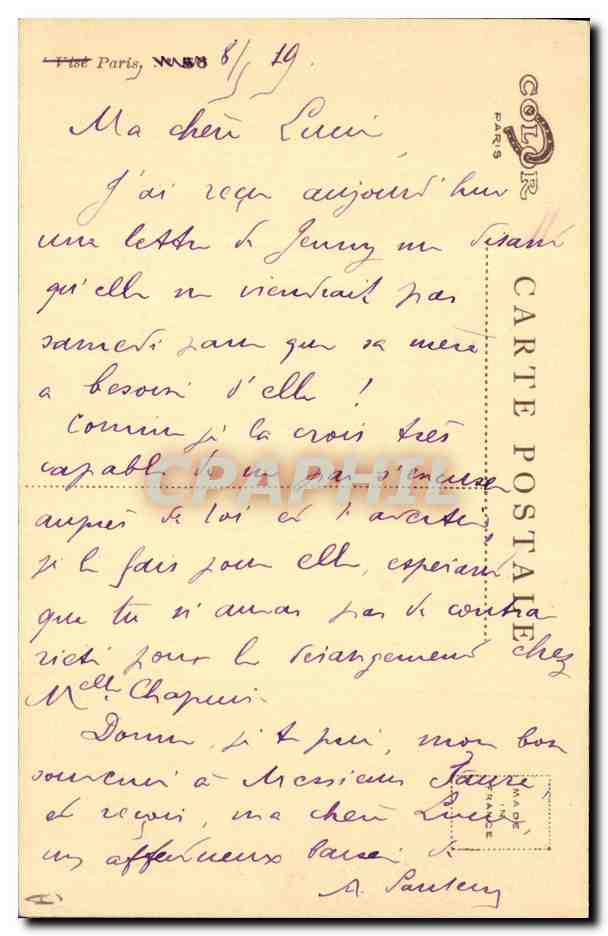 Visé Paris, 8/5 19.
Ma chère Lucie
J'ai reçu aujourd'hui
une lettre de Jenny me disant
qu'elle ne viendrait pas
samedi parce que sa mère
a besoin d'elle !
Comme je la crois très
capable de ne pas s'excuser
auprès de toi et t'avertir,
je le fais pour elle, espérant
que tu n'auras pas de contra
riété pour le dérangement chez
Melle Chapuis.
Donne, je te prie, mon bon
souvenir à Messieurs Faure,
et reçois, ma chère Lucie,
un affectueux baiser de
A.
COLOR
PARIS
CARTE POSTALE
MADE
IN
FRANCE
CPAPHIL